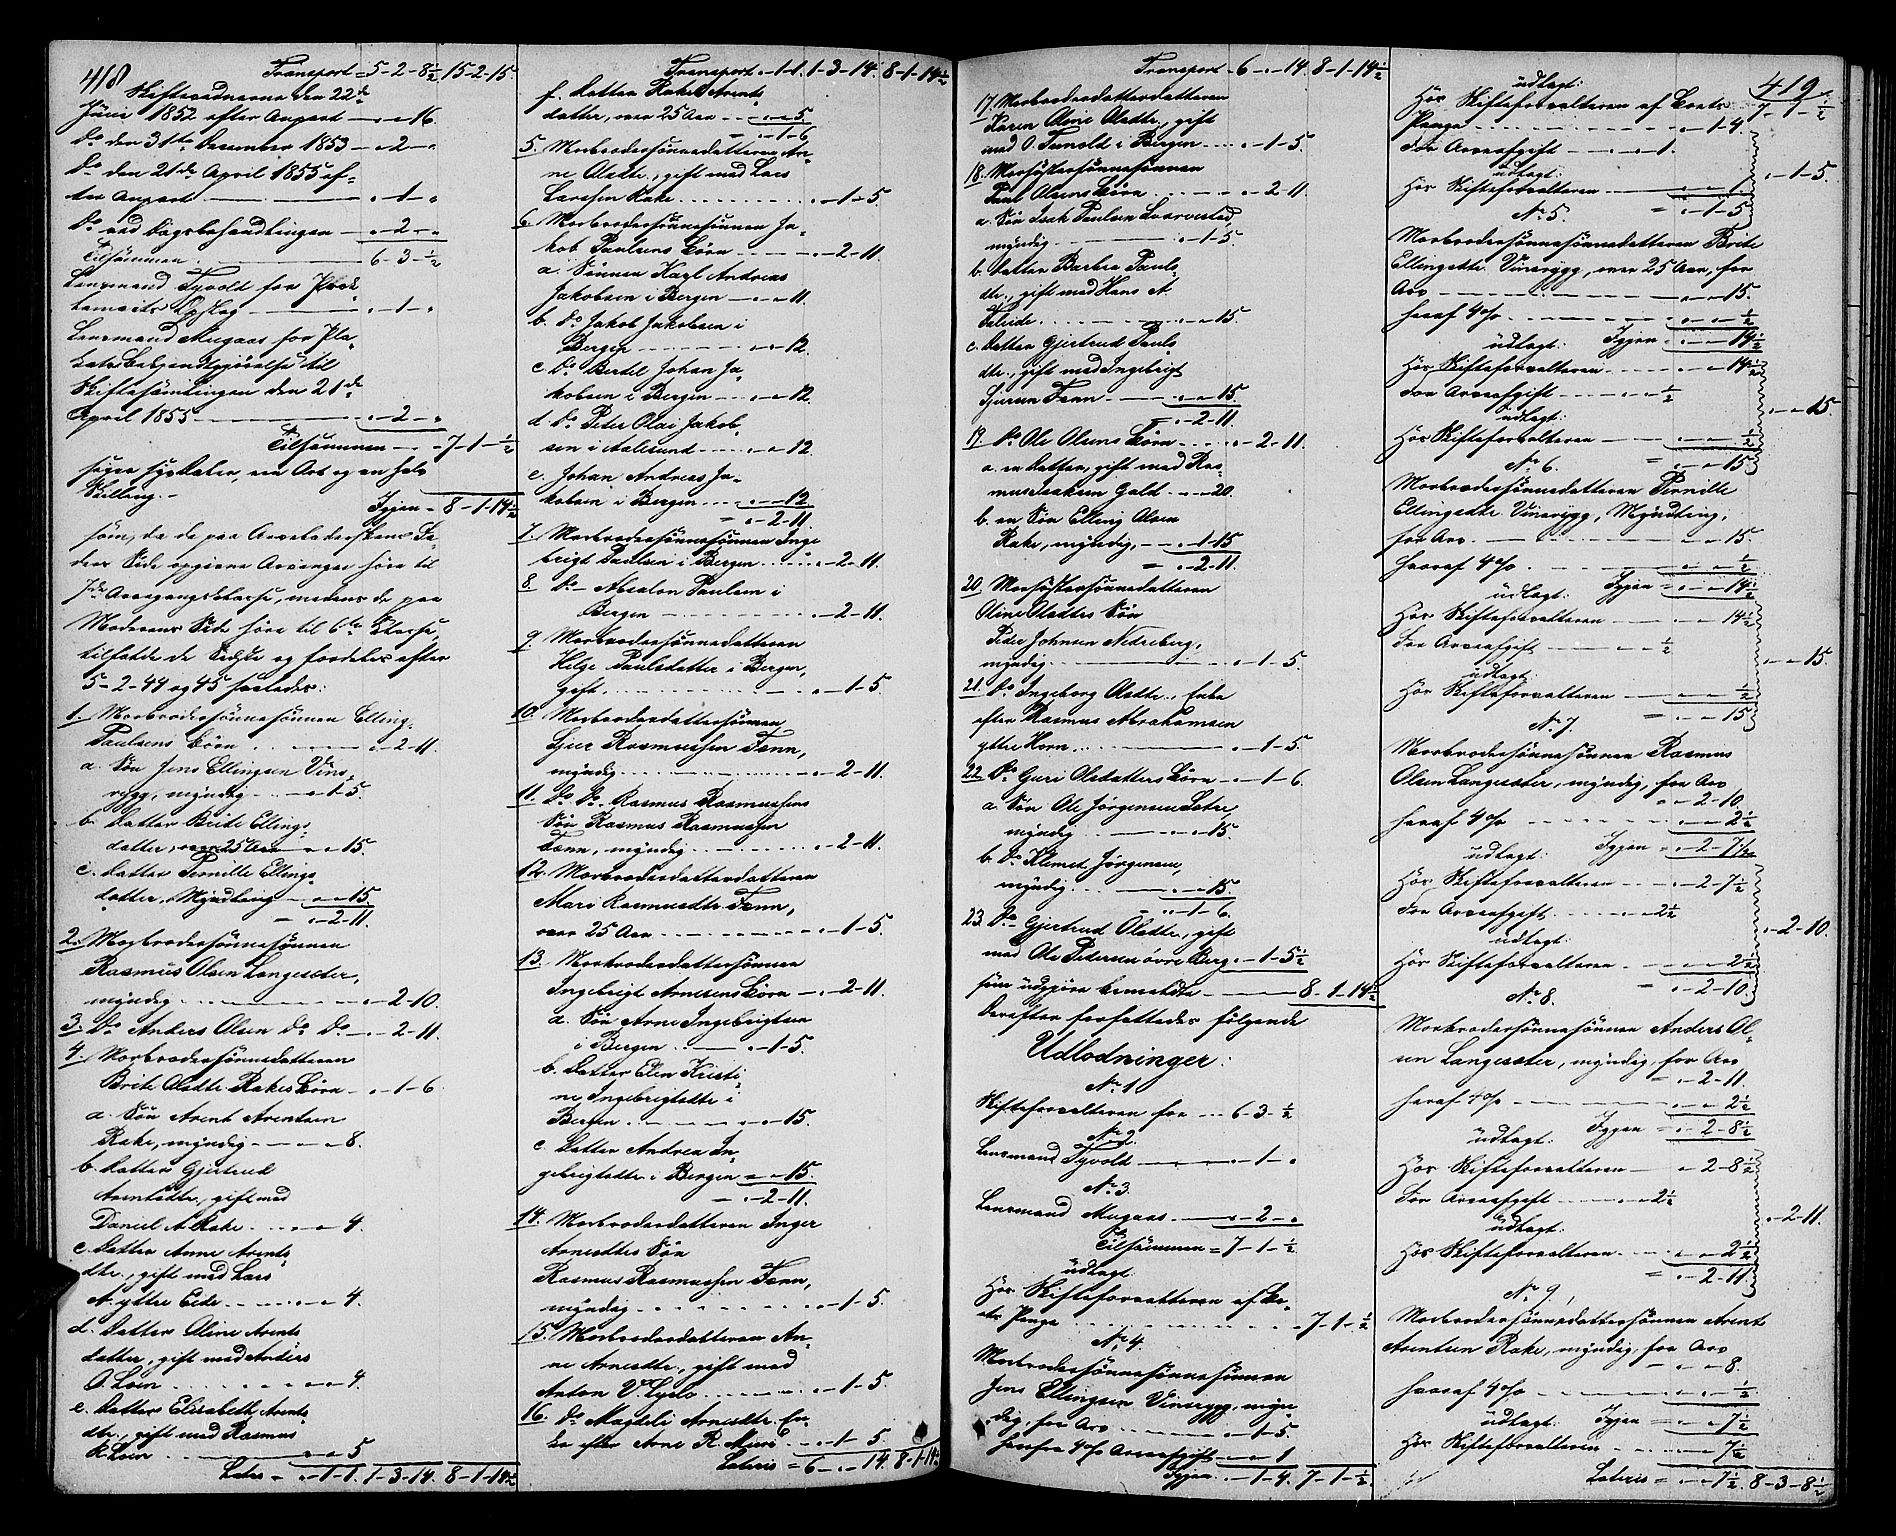 418
Transport - 5-2-8½ 15-2-15
Skifteordnerne den 22de
Juni 1852 efter Anpart - „ - „ 16.
Do den 31te December 1853 - „ - 2 - „
Do den 21de April 1855 ef-
ter Anpart - „ - 1 - „
Do ved Dagsbehandlingen - „ - 2 - „
Tilsammen - 6-3-½
Lensmand Tyvold for Plock
„ - 1 - „
Lensmand Mugaas for Pla-
katers Bekjendtgjørelse til
Skiftesamlingen den 21de
April 1855 - „ - 2 - „
Tilsammen - 7-1-½
siger syv Daler, en Ort og en halv
Skilling.
Igjen - 8-1-14½
som, da de paa Arveladerskens Fa-
ders Side opgivne Arvinger høre til
7de Arvegangsklasse, medens de paa
Moderens Side høre til 6te Klasse,
tilfalde de Sidste og fordeles efter
5-2-44 og 45 saaledes:
1. Morbrodersønnesønnen Elling
Paulsens Børn - „ - 2-11.
a. Søn Jens Ellingsen Vins-
rygg, myndig - „ - 1-5.
b. Datter Brite Ellings-
datter, over 25 Aar „ - „ 15.
c. Datter Pernille Ellings-
datter, Myndling - „ - „ 15.
= „ - 2-11.
2. Morbrodersønnesønnen
Rasmus Olsen Langesæter,
myndig - „ - 2-10.
3. Do Anders Olsen Do Do - „ - 2-11.
4. Morbrodersønnedatteren
Brite Olsdtr. Rakes Børn - „ - 1-6
a. Søn Arent Arentsen
Rake, myndig - „ - „ 8.
b. Datter Gjertrud
Arentsdtr., gift med
Daniel A. Rake - „ - „ 4.
c. Datter Anne Arents
dtr., gift med Lars
A. yttre Eide - „ - „ 4.
d. Datter Oline Arents
datter, gift med Anders
O. Loen - „ - „ 4.
e. Datter Elisabeth Arents
dtr., gift med Rasmus
R. Loen - „ - „ 5
Lateris - „ - 1-1. 1-3-14. 8-1-14½
Transport - „ 1-1. 1-3-14. 8-1-14½
f. Datter Rakel Arents
datter, over 25 Aar - „ - „ 5.
= „ - 1-6
5. Morbrodersønnedatteren An-
ne Olsdtr., gift med Lars
Larssen Rake - „ - 1-5
6. Morbrodersønnesønnen Ja-
kob Paulsens Børn - „ - 2-11.
a. Sønnen Karl Andreas
Jakobsen i Bergen - „ - „ 11.
b. Do Jakob Jakobsen i
Bergen - „ - „ 12.
c. Do Bertel Johan Ja-
kobsen i Bergen - „ - „ 12
d. Do Peter Olai Jakob-
sen i Aalesund - „ - „ 12.
e. Johan Andreas Ja-
kobsen i Bergen - „ - „ 12
= „ - 2-11.
7. Morbrodersønnesønnen Inge
brigt Paulsen i Bergen - „ - 2-11.
8. Do - Absalon Paulsen i
Bergen - „ - 2-11.
9. Morbrodersønnedatteren
Helge Paulsdatter i Bergen,
gift - „ - 1-5.
10. Morbroderdattersønnen
Sjur Rasmussen Tenn,
myndig - „ - 2-11.
11. Do Do - Rasmus Rasmussens
Søn Rasmus Rasmussen
Tenn, myndig - „ - 2-11.
12. Morbroderdatterdatteren
Mari Rasmusdtr. Tenn,
over 25 Aar - „ - 1-5.
13. Morbroderdattersønnen
Ingebrigt Arnesens Børn - „ - 2-11.
a. Søn Arne Ingebrigtsen
i Bergen - „ - 1-5.
b. Datter Elen Kristi-
ne Ingebrigtsdtr. i
Bergen - „ - „ 15.
c. Datter Andrea In-
gebrigtsdtr. i Bergen - „ - „ 15.
= „ - 2-11.
14. Morbroderdatteren Inger
Arnesdtrs Søn
Rasmus Rasmussen Tenn,
myndig - „ - 1-5.
15. Morbroderdatteren An-
ne Arnesdtr., gift med
Anton V. - „ - 1-5.
16. Do Magdeli Arnesdtr. En-
ke efter Arne R. - „ - 1-5.
Lateris = 6 - „ - 14. 8-1-14½
Transport - 6 - „ - 14. 8-1-14½
17. Morbroderdatterdatteren
Karen Oline Olsdtr., gift
med O. i Bergen - „ - 1-5.
18. Morsøstersønnesønnen
Paul Olsens Børn - „ - 2-11.
a. Søn Isak Paulsen
myndig - „ - 1-5.
b. Datter Barbra Pauls-
dtr., gift med Hans A.
- „ - „ 15.
c. Datter Gjertrud Pauls
dtr., gift med Ingebrigt
Sjursen Tenn - „ - „ 15
= „ - 2-11.
19. Do Ole Olsens Børn - „ - 2-11.
a. en Datter, gift med Ras-
mus Isaksen Gald - „ - „ 20.
b. en Søn Elling Olsen
Rake, myndig, - „ - 1-15
= „ - 2-11.
20. Morsøstersønnedatteren
Oline Olsdtrs Søn
Peder Johnsen Nedreberg,
myndig - „ - 1-5.
21. Do Ingeborg Olsdtr., Enke
efter Rasmus Abrahamsen
yttre Horn - „ - 1-5.
22. Do Guri Olsdatters Børn - „ - 1-6
a. Søn Ole Jørgensen Sætre,
myndig - „ - „ 15.
b. Do Klemet Jørgensen,
myndig - „ - „ 15.
= „ - 1-6.
23. Do Gjertrud Olsdtr., gift
med Ole Pedersen øvre Berg - „ - 1-5½
som udgjøre bemeldte - 8-1-14½
Derefter forfattedes følgende
Udlodninger:
No 1
Skifteforvalteren for - 6-3-½
No 2.
Lensmand Tyvold - „ - 1 - „
No 3.
Lensmand Mugaas - „ - 2 - „
Tilsammen = 7-1-½
udlagt:
Hos Skifteforvalteren af Bo-
ets Penge - 7-1-½
No 4.
Morbrodersønnesønnesønnen
Jens Ellingsen Vinsrygg, myn-
dig, for Arv - „ - 1-5
herfra 4 o/o Arveafgift - „ - „ 1
Igjen - „ - 1-4. 7-1-½
419.
7-1-½
udlagt:
Hos Skifteforvalteren af Boets
Penge - „ - 1-4.
For Arveafgift - „ - „ 1.
udlagt:
Hos Skifteforvalteren - „ - „ 1
= „ - 1-5
„ - 1-5
No 5.
Morbrodersønnesønnedatteren Brite
Ellingsdtr. Vinsrygg, over 25 Aar, for
Arv - „ - „ 15.
heraf 4 o/o - „ - „ ½
Igjen - „ - „ 14½
udlagt:
Hos Skifteforvalteren - „ - „ 14½
For Arveafgift - „ - „ ½
udlagt:
Hos Skifteforvalteren - „ - „ ½
= „ - „ 15
„ - „ 15
No 6.
Morbrodersønnesønnedatteren Pernille
Ellingsdtr. Vinsrygg, Myndling,
for Arv - „ - „ 15
heraf 4 o/o - „ - „ ½
Igjen - „ - „ 14½
udlagt:
Hos Skifteforvalteren - „ - „ 14½
For Arveafgift - „ - „ ½
udlagt:
Hos Skifteforvalteren - „ - „ ½
= „ - „ 15
„ - „ 15.
No 7.
Morbrodersønnesønnen Rasmus
Olsen Langesæter, myndig, for Arv
„ - 2-10.
heraf 4 o/o - „ - „ 2½
Igjen - „ - 2-7½
udlagt:
Hos Skifteforvalteren - „ - 2-7½
For Arveafgift - „ - „ 2½
udlagt:
Hos Skifteforvalteren - „ - „ 2½
= „ - 2-10.
„ - 2-10.
No 8.
Morbrodersønnesønnen Anders Ol-
sen Langesæter, myndig, for Arv
= „ - 2-11
heraf 4 o/o - „ - „ 2½
Igjen = „ - 2-8½
udlagt:
Hos Skifteforvalteren - „ - 2-8½
For Arveafgift - „ - „ 2½
udlagt:
Hos Skifteforvalteren - „ - „ 2½
= „ - 2-11
„ - 2-11.
No 9.
Morbrodersønnedattersønnen Arent
Arentsen Rake, myndig, for Arv
- „ - „ 8.
heraf 4 o/o - „ - „ ½
Igjen = „ - „ 7½
udlagt:
Hos Skifteforvalteren - „ - „ 7½
Lateris = „ - „ 7½ 8-3-8½